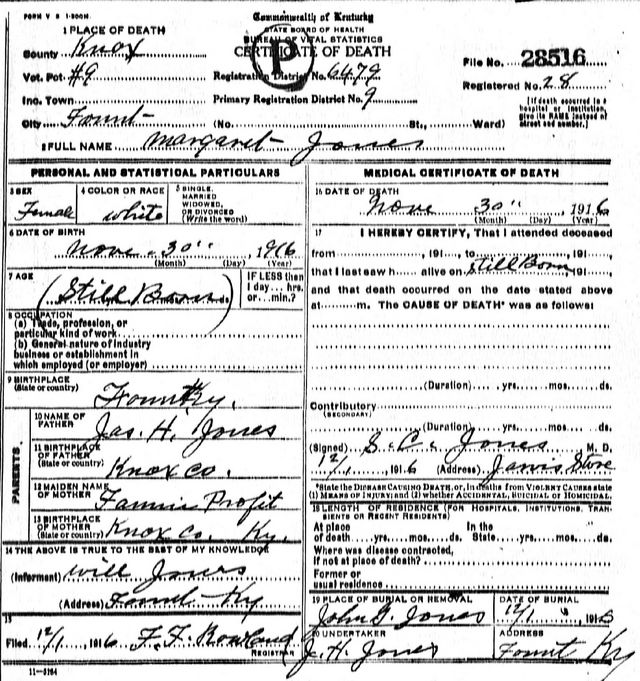 FORM V S 1-500M.
Commonwealth of Kentucky
STATE BOARD OF HEALTH
BUREAU OF VITAL STATISTICS
CERTIFICATE OF DEATH
P
1 PLACE OF DEATH
County Knox
Vot. Pct #9
Inc. Town
City Fount
Registration District No. 6479
Primary Registration District No. 9
(No. St., Ward)
File No. 28516
Registered No. 28
[If death occurred in a hospital or institution, give its NAME instead of street and number.]
2 FULL NAME Margaret Jones
PERSONAL AND STATISTICAL PARTICULARS
3 SEX Female
4 COLOR OR RACE white
5 SINGLE, MARRIED WIDOWED, OR DIVORCED (Write the word)
6 DATE OF BIRTH
Nove. 30" 1916
(Month) (Day) (Year)
7 AGE
(Still Born)
IF LESS then 1 day... hrs. or... min.?
8 OCCUPATION
(a) Trade, profession, or particular kind of work
(b) General nature of industry business or establishment in which employed (or employer)
9 BIRTHPLACE (State or country) Fount Ky.
PARENTS
10 NAME OF FATHER Jas. H. Jones
11 BIRTHPLACE OF FATHER (State or country) Knox Co.
12 MAIDEN NAME OF MOTHER Fannie Profit
13 BIRTHPLACE OF MOTHER (State or country) Knox Co. Ky.
14 THE ABOVE IS TRUE TO THE BEST OF MY KNOWLEDGE
(Informant) Will Jones
(Address) Fount Ky
15
Filed 12/1, 1916 F. F. Rowland
REGISTRAR
11-3184
MEDICAL CERTIFICATE OF DEATH
16 DATE OF DEATH
Nove 30" 1916
(Month) (Day) (Year)
17 I HEREBY CERTIFY, That I attended deceased
from, 191, to, 191,
that I last saw h alive on Still Born, 191,
and that death occurred on the date stated above
at m. The CAUSE OF DEATH* was as follows:
(Duration) yrs. mos. ds.
Contributory
(SECONDARY)
(Duration) yrs. mos. ds.
(Signed) S. C. Jones M. D.
12/1, 1916 (Address) Jarvis Store
*State the DISEASE CAUSING DEATH, or, in deaths from VIOLENT CAUSES state (1) MEANS OF INJURY; and (2) whether ACCIDENTAL, SUICIDAL or HOMICIDAL.
18 LENGTH OF RESIDENCE (FOR HOSPITALS, INSTITUTIONS, TRANSIENTS OR RECENT RESIDENTS)
At place of death yrs. mos. ds. In the State yrs. mos. ds.
Where was disease contracted, if not at place of death?
Former or usual residence
19 PLACE OF BURIAL OR REMOVAL
John G. Jones
DATE OF BURIAL
12/1, 1916
20 UNDERTAKER
J. H. Jones
ADDRESS
Fount Ky